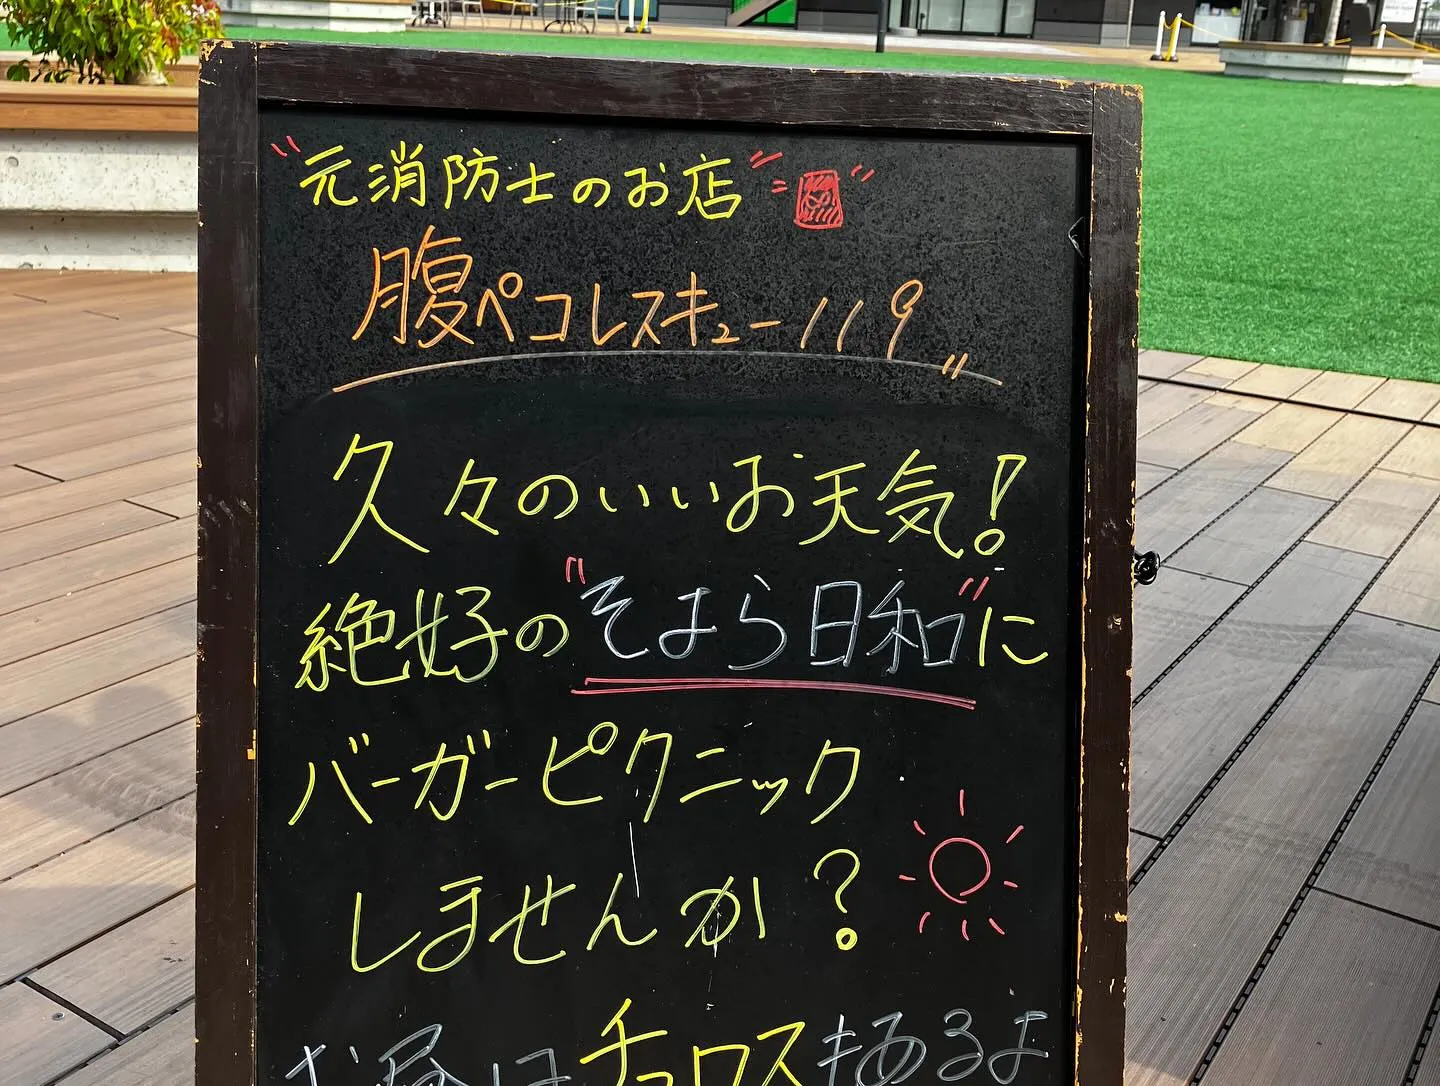 "元消防士のお店"
腹ペコレスキュー119"
久々のいいお天気!
絶好の"そよら日和"に
バーガーピクニック
しませんか?
お昼はチュロスもあるよ